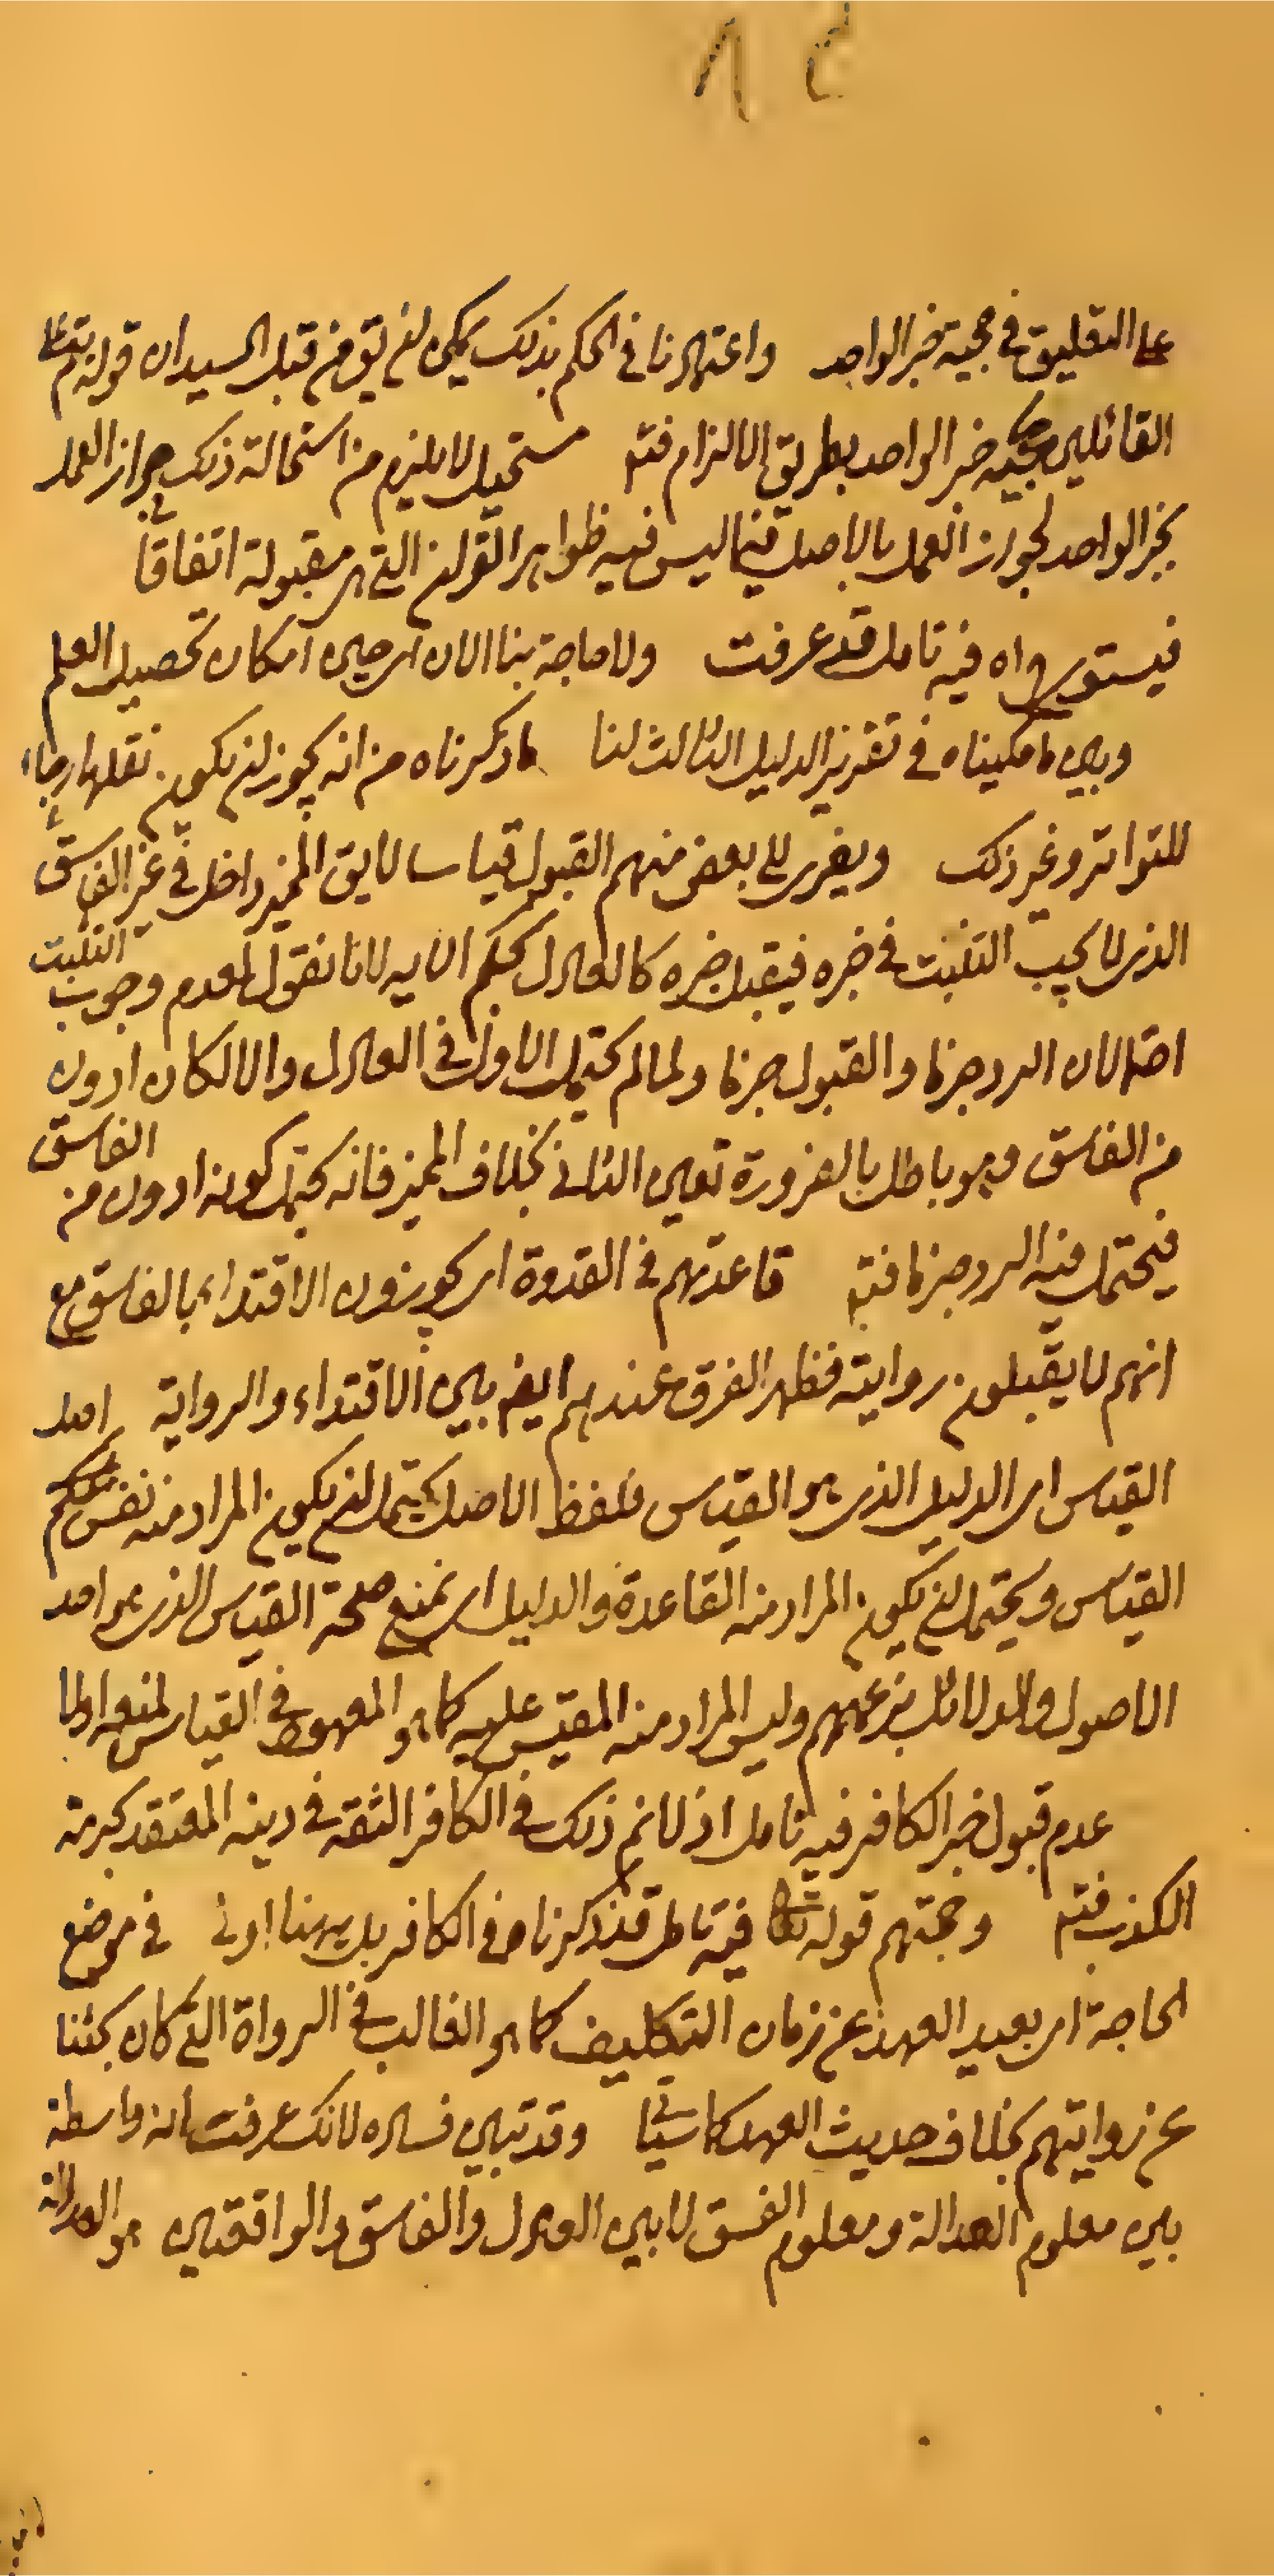 على التعليق في حجية خبر الواحد واعتبارنا في الحكم بذلك يمكن ان يق من قبل السيد ان قوله يتم على
القائلين بحجية خبر الواحد بطريق الالزام فتم مستحيل لا يلزم من استحالة ذلك جواز العمل
بخبر الواحد لجواز العمل بالاصل فيما ليس فيه ظواهر القران التي هي مقبولة اتفاقا
فيستوي فيه تامل قد عرفت ولا حاجة بنا الان اي حين امكان تحصيل العلم
وبين ما حكيناه في تقرير الدليل الثالث لنا ما ذكرناه من انه يجوز ان يكون نقلها رجاء
للتواتر وغير ذلك ويعزى الى بعض منهم القبول قياسا لا يق المميز داخل في غير الفاسق
الذي لا يجب التثبت في خبره فيقبل خبره كالعادل بحكم الاية لانا نقول لعدم وجوب التثبت
احتمالان الرد جزما والقبول جزما ولما لم يحتمل الاول في العادل والا لكان ادون
من الفاسق وهو باطل بالضرورة تعين الثاني بخلاف المميز فانه يحتمل كونه ادون من الفاسق
فيحتمل فيه الرد جزما فتم قاعدتهم في القدوة اي يجوزون الاقتداء بالفاسق مع
انهم لا يقبلون روايته فظهر الفرق عندهم ايضا بين الاقتداء والرواية اصل
القياس اي الدليل الذي هو القياس فلفظ الاصل يحتمل ان يكون المراد منه نفس حكم
القياس ويحتمل ان يكون المراد منه القاعدة والدليل اي نمنع صحة القياس الذي هو احد
الاصول والدلائل بزعمهم وليس المراد منه المقيس عليه كما هو المعهود في القياس لمنعه
عدم قبول خبر الكافر فيه تامل اذ لا نم ذلك في الكافر الثقة في دينه المعتقد بحرمة
الكذب فتم وحجتهم قوله تعالى فيه تامل قد ذكرناه في الكافر بل ههنا اولى في موضع
الحاجة اي بعيد العهد عن زمان التكليف كما هو الغالب في الرواة التي كان بحثنا
عن روايتهم بخلاف حديث العهد كما سياتي وقد تبين فساده لانك عرفت انه واسطة
بين معلوم العدالة ومعلوم الفسق لا بين العادل والفاسق الواقعيين هو العدالة